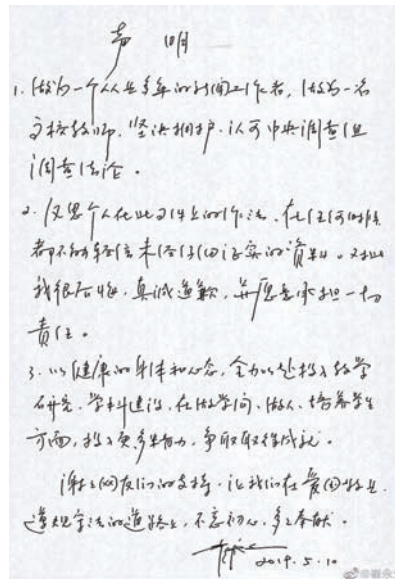 声 明
1. 做为一个从业多年的新闻工作者，做为一名
高校教师，坚决拥护、认可中央调查组
调查结论。
2. 反思个人在此事件上的作法，在任何时候
都不能轻信未经仔细证实的资料。对此
我很后悔，真诚道歉，并愿意承担一切
责任。
3. 以健康的身体和心态，全力以赴投入教学
研究、学科建设，在做学问、做人、培养学生
方面，投入更多精力，争取取得成就。
谢谢网友们的支持，让我们在爱国敬业、
遵规守法的道路上，不忘初心，多多奉献。
2019.5.10
@崔永